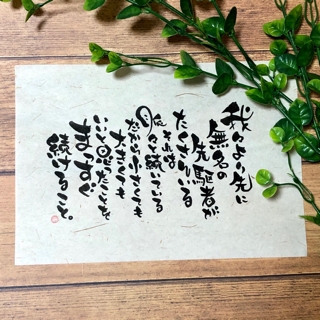 我より先に
無名の
先駆者が
たくさんいる
それは
脈々と続いている
だから小さくても
大きくても
いいと思ったことを
まっすぐ
続けること。